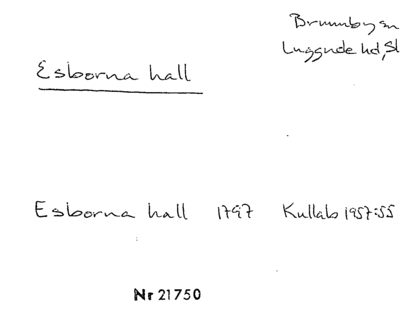 Brunnby sn
Luggude hd, Sk
Esborna hall
Esborna hall 1797 Kullab 1957:55
Nr 21750